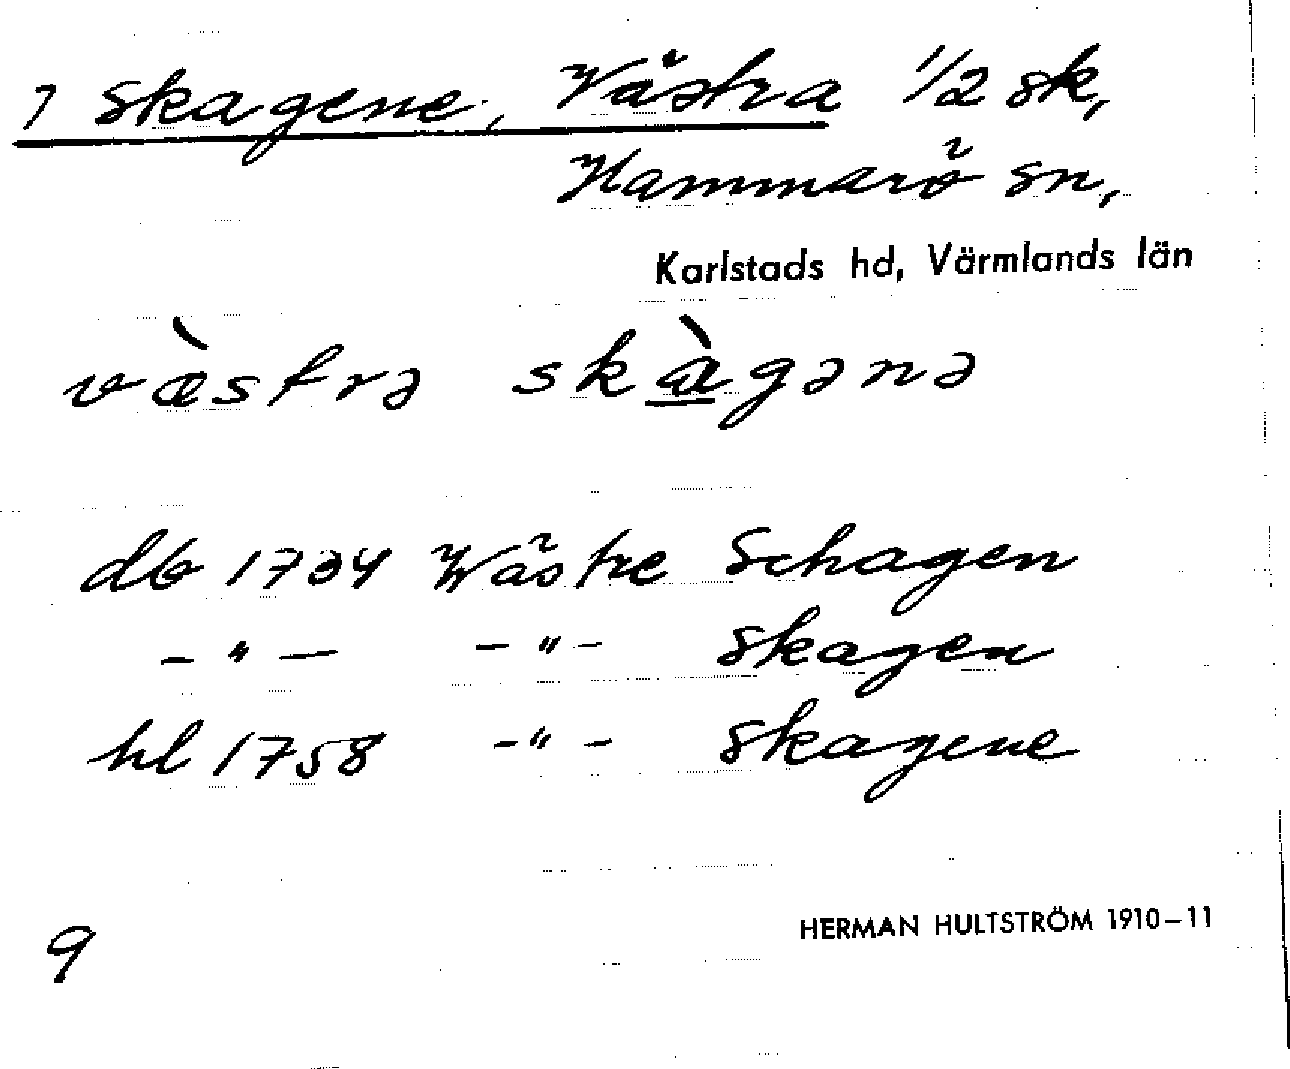 7 Skagene, Västra 1/2 sk,
Hammarö sn,
Karlstads hd, Värmlands län
væ̀strə skɑ̀gənə
db 1734 Wästre Schagen
– " – – " – Skagen
hl 1758 – " – Skagene
HERMAN HULTSTRÖM 1910–11
9